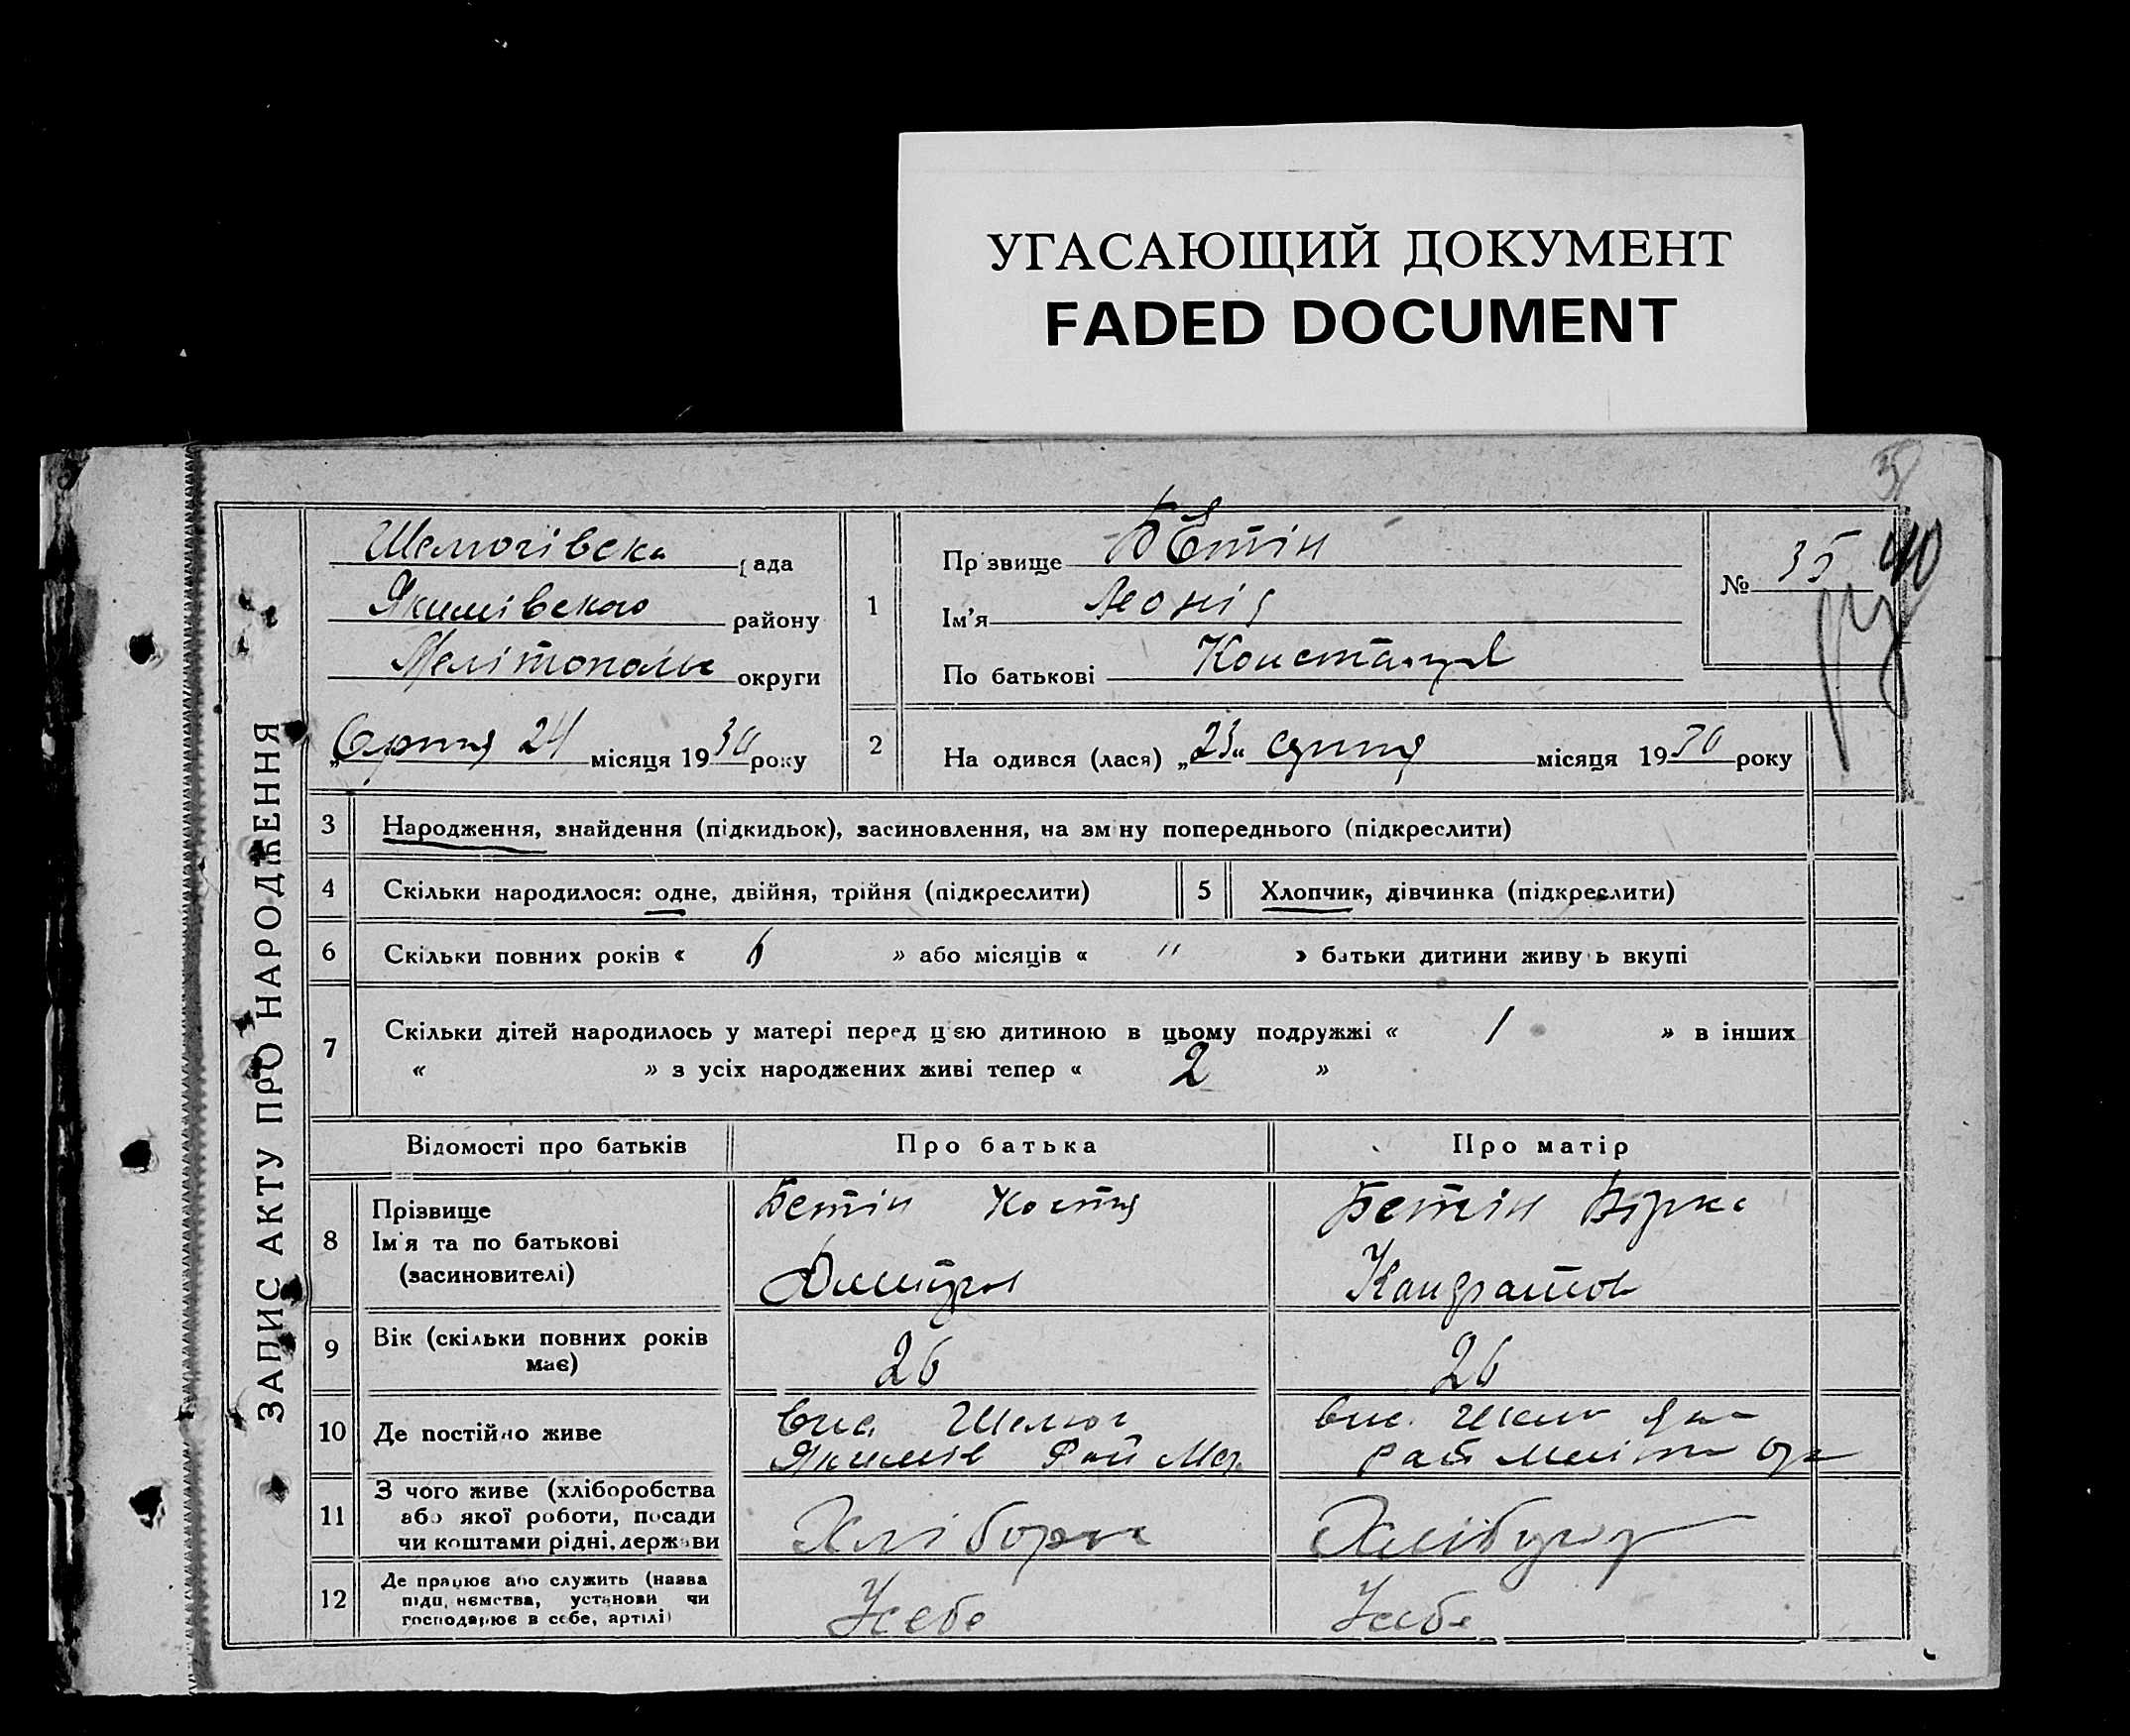 УГАСАЮЩИЙ ДОКУМЕНТ
FADED DOCUMENT
ЗАПИС АКТУ ПРО НАРОДЖЕННЯ
Шелюгівська рада
Якимівского району
Мелітополь округи
„Серпня 24 місяця 1930 року
1
Прізвище Бетін
Ім'я Леонід
По батькові Констант
№ 35
40
2
На одився (лася) „23“ серпня місяця 1930 року
3 Народження, знайдення (підкидьок), засиновлення, на зм ну попереднього (підкреслити)
4 Скільки народилося: одне, двійня, трійня (підкреслити)
5 Хлопчик, дівчинка (підкреслити)
6 Скільки повних років « 6 » або місяців « " » батьки дитини живу ь вкупі
7 Скільки дітей народилось у матері перед цією дитиною в цьому подружжі « 1 » в інших
« » з усіх народжених живі тепер « 2 »
Відомості про батьків Про батька Про матір
8 Прізвище
Ім'я та по батькові
(засиновителі)
Бетін Костя
Дмитров
Бетін Вірка
Кандратов
9 Вік (скільки повних років
має)
26
26
10 Де постійно живе
Вис. Шелюг
Якимів Рай Мел
вис. Шелюг Яки
рай Меліт ок
11 З чого живе (хліборобства
або якої роботи, посади
чи коштами рідні, держави
Хлібороб
Хлібороб
12 Де працює або служить (назва
підп, немства, установи чи
господарює в себе, артілі)
У себе
У себе